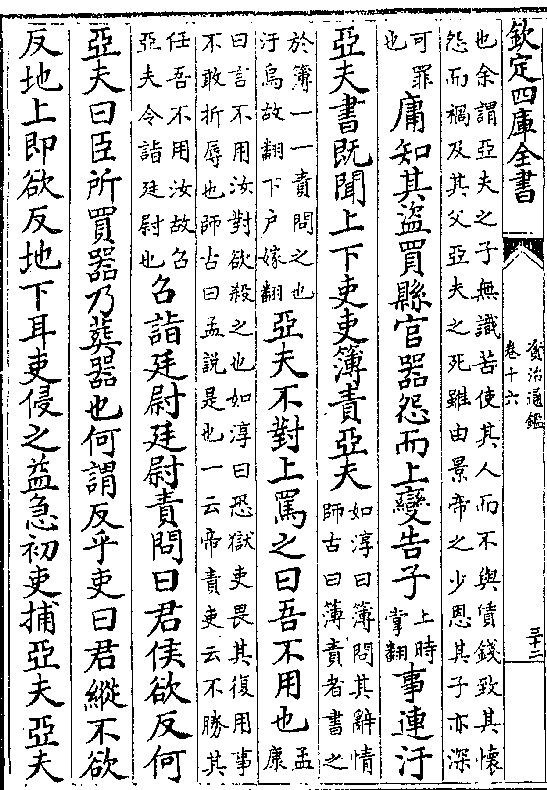 欽定四庫全書
資治通鑑
卷十六
三十二
也余謂亞夫之子無識苦使其人而不與債錢致其懷
怨而禍及其父亞夫之死雖由景帝之少恩其子亦深
可罪
也
庸知其盜買縣官器怨而上變告子
上時
掌翻
事連汙
亞夫書既聞上下吏吏簿責亞夫
如淳曰簿問其辭情
師古曰簿責者書之
於簿一一責問之也
汙烏故翻下户嫁翻
亞夫不對上罵之曰吾不用也
孟
康
曰言不用汝對欲殺之也如淳曰恐獄吏畏其復用事
不敢折辱也師古曰孟說是也一云帝責吏云不勝其
任吾不用汝故召
亞夫令詣廷尉也
召詣廷尉廷尉責問曰君侯欲反何
亞夫曰臣所買器乃葬器也何謂反乎吏曰君縱不欲
反地上即欲反地下耳吏侵之益急初吏捕亞夫亞夫